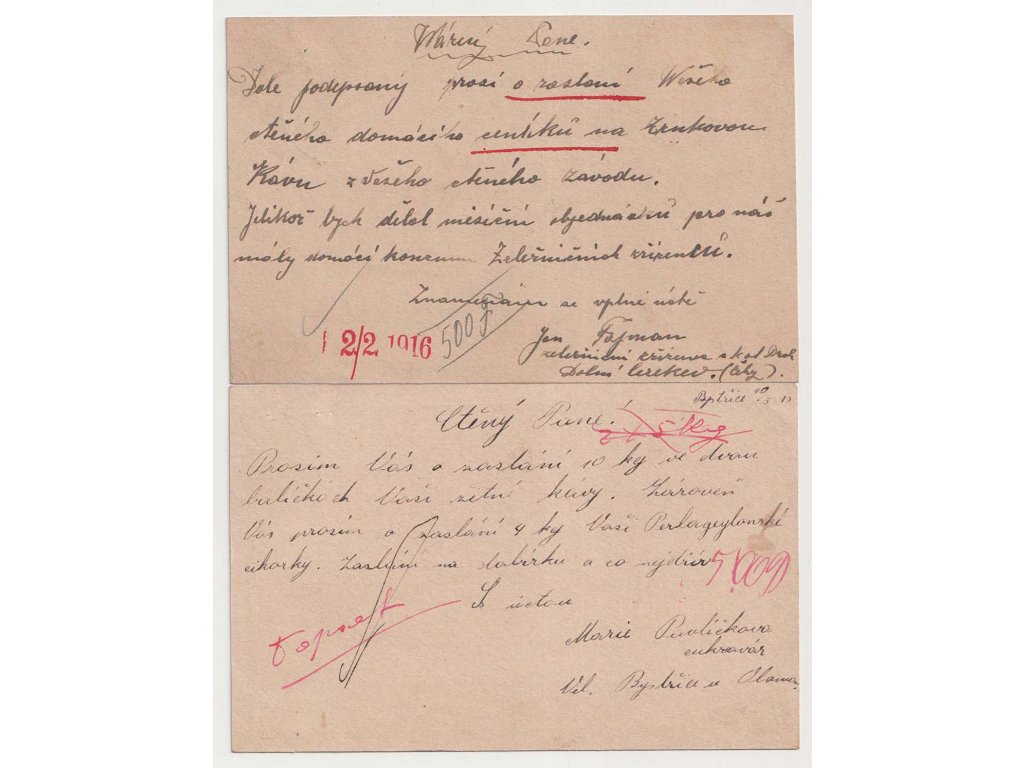 Vážený Pane.
Dole podepsaný prosí o zaslání Vašeho
ctěného domácího ceníků na Zrnkovou
Kávu z Vešého ctěného závodu.
Jelikož bych dělal měsíční objednávků pro náš
málý domácí konzum Železničních zřízenců.
Znamenám se v plné úctě
12/2 1916
500 F
Jan Fajman
železniční zřízenec
Dolní Cerekev. (Čechy).
Bystřice 10
Ctěný Pane!
2 x 5 Kg
Prosím Vás o zaslání 10 kg ve dvou
balíčkách Vaší žitné kávy. Zároveň
Vás prosím o zaslání 4 kg Vaší Perlageylonské
cikorky. Zaslání na dobírku a co nejdřív
S úctou
Marie Pavlíčkova
cukrovár
Vel. Bystřice u Olomou